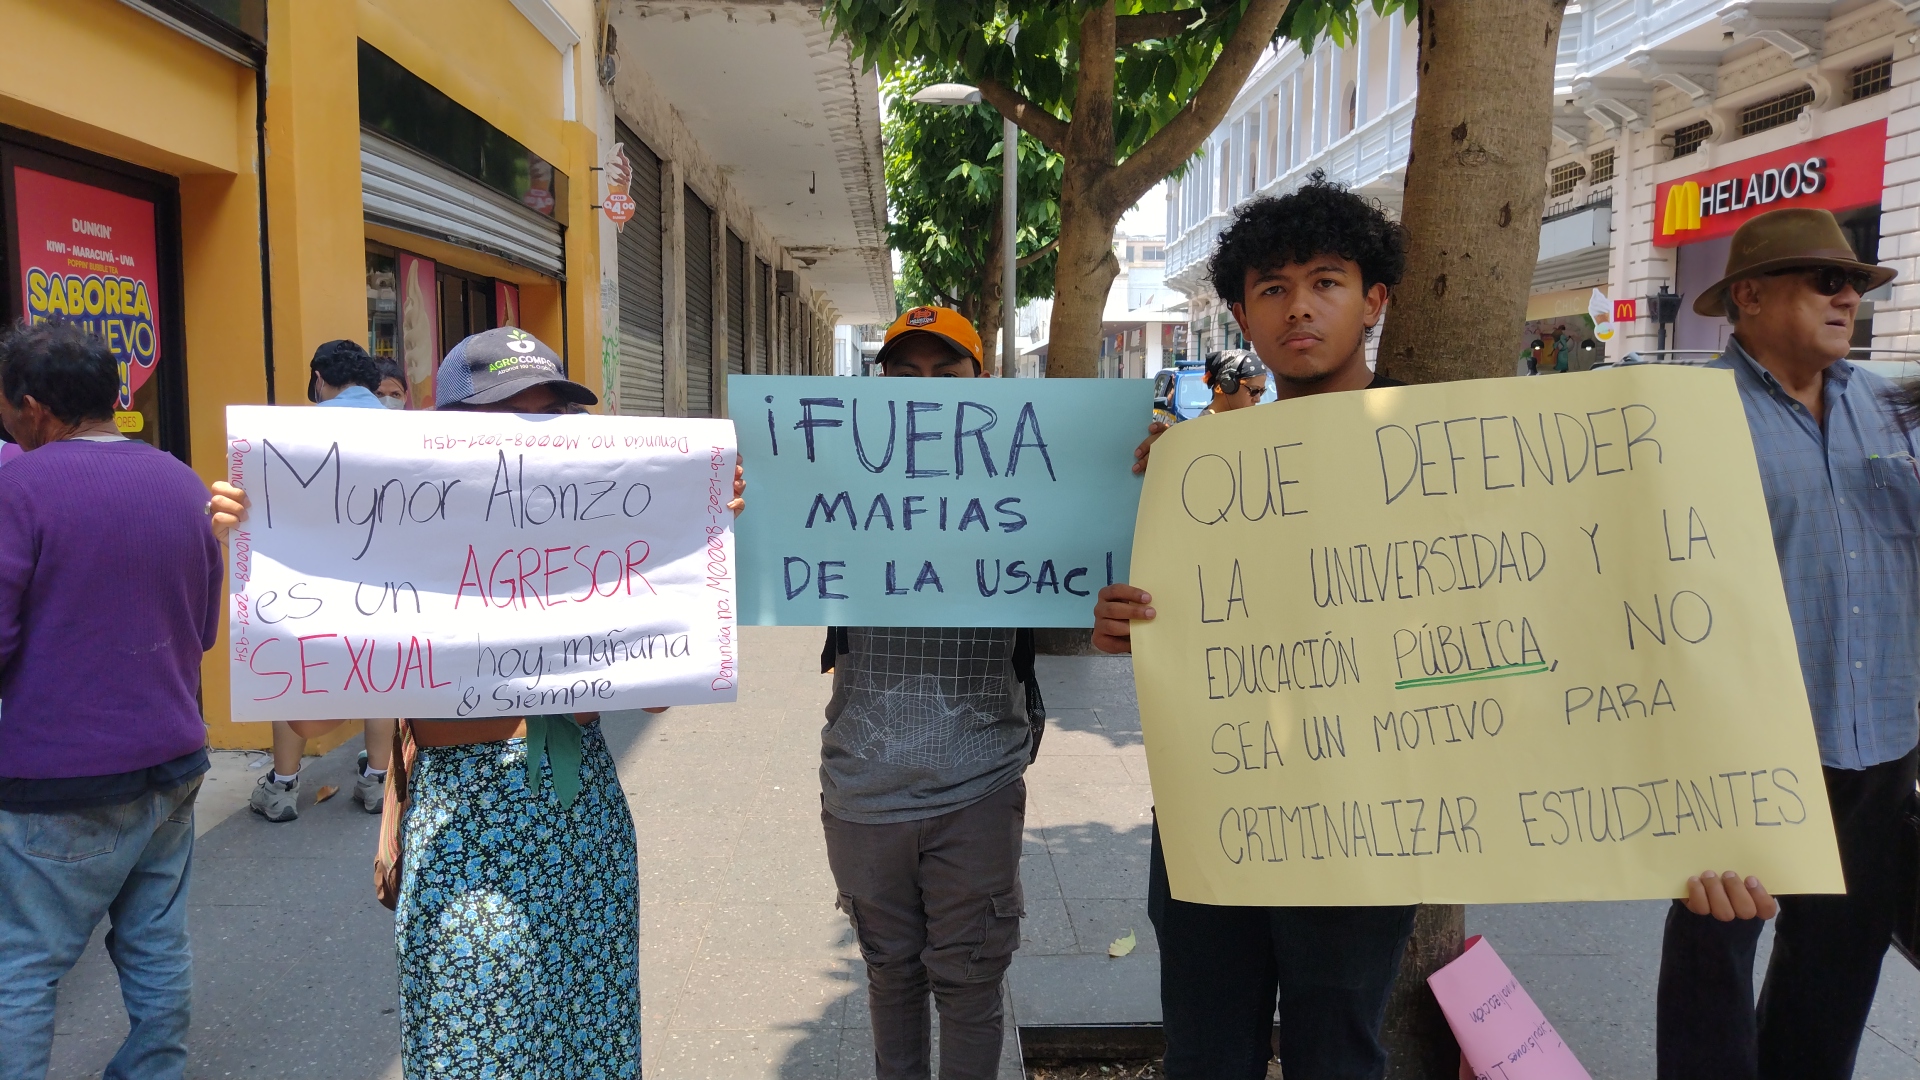 DUNKIN'
KIWI - MARACUYÁ - UVA
POPPIN' BUBBLE TEA
SABOREA
NUEVO
Q4.00
AGROCOMPOST
HELADOS
Denuncia no. M0008-2021-954
Denuncia no. M0008-2021-954
Mynor Alonzo
es un AGRESOR
SEXUAL, hoy, mañana
& siempre
Denuncia no. M0008-2021-954
¡FUERA
MAFIAS
DE LA USAC!
QUE DEFENDER
LA UNIVERSIDAD Y LA
EDUCACIÓN PÚBLICA, NO
SEA UN MOTIVO PARA
CRIMINALIZAR ESTUDIANTES